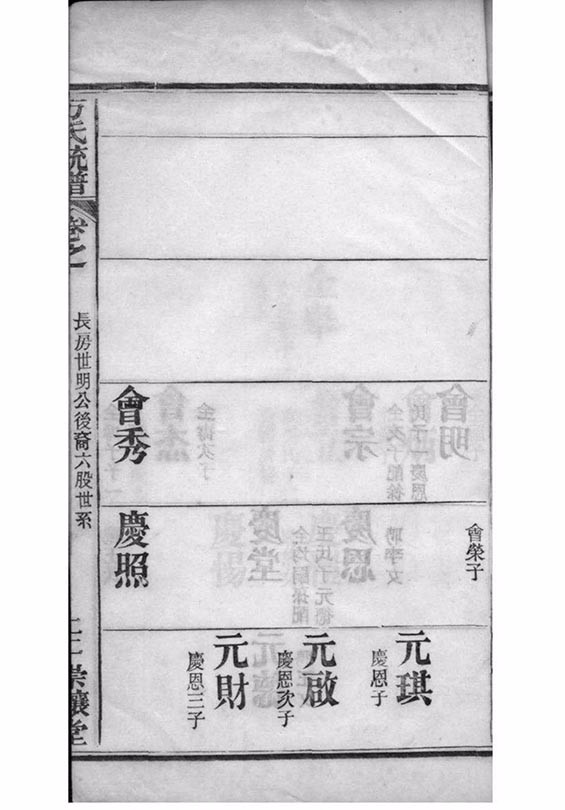 會榮子
元琪
慶恩子
元啟
慶恩次子
元財
慶恩三子
會秀
慶照
方氏統譜
卷之一
長房世明公後裔六股世系
崇讓堂